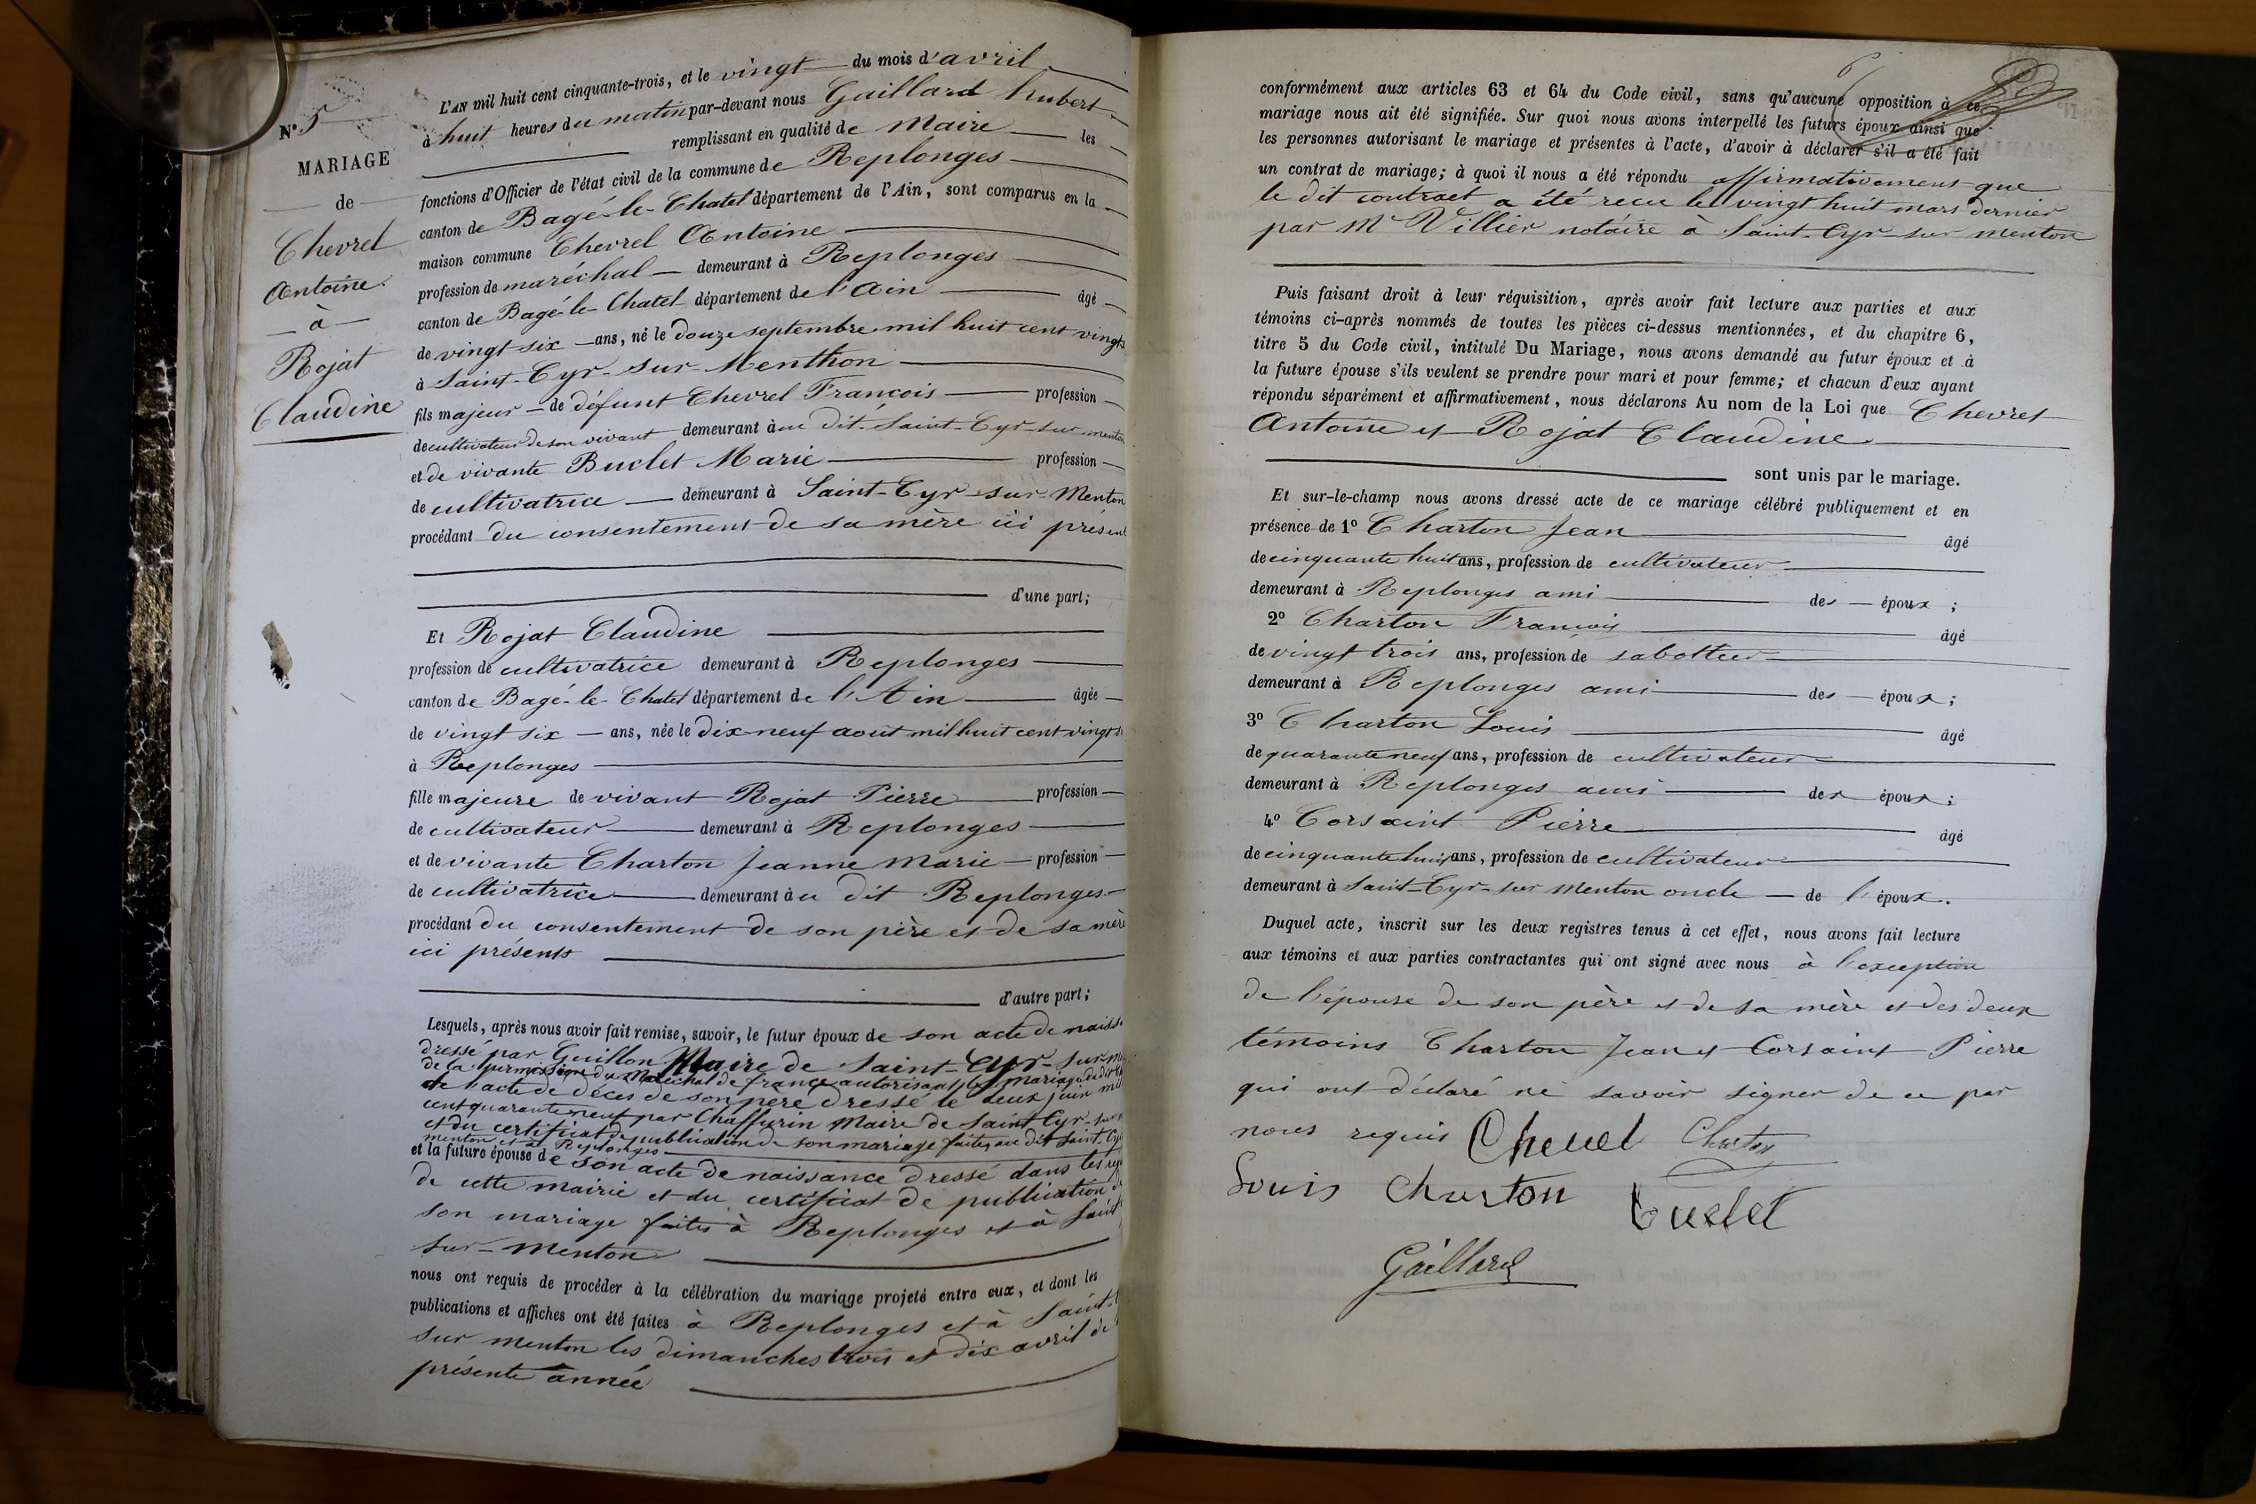 N° 5
MARIAGE
de
Chevrel
Antoine
à
Rojat
Claudine
L'AN mil huit cent cinquante-trois, et le vingt du mois d'avril
à huit heures du matin par-devant nous Gaillard hubert
remplissant en qualité de Maire les
fonctions d'Officier de l'état civil de la commune de Replonges
canton de Bagé-le-Chatel département de l'Ain, sont comparus en la
maison commune Chevrel Antoine
profession de maréchal demeurant à Replonges
canton de Bagé-le-Chatel département de l'Ain âgé
de vingt six ans, né le douze septembre mil huit cent vingt
à Saint-Cyr-sur-Menthon
fils majeur de défunt Chevrel François profession
de cultivateur de son vivant demeurant à au dit Saint-Cyr-sur menton
et de vivante Buclet Marie profession
de cultivatrice demeurant à Saint-Cyr-sur-Menton
procédant du consentement de sa mère ici présent
d'une part;
Et Rojat Claudine
profession de cultivatrice demeurant à Replonges
canton de Bagé-le-Chatel département de l'Ain âgée
de vingt six ans, née le dix-neuf août mil huit cent vingt
à Replonges
fille majeure de vivant Rojat Pierre profession
de cultivateur demeurant à Replonges
et de vivante Charton Jeanne Marie profession
de cultivatrice demeurant à u dit Replonges
procédant du consentement de son père et de sa mère
ici présents
d'autre part;
Lesquels, après nous avoir fait remise, savoir, le futur époux de son acte de naiss
dressé par Guillon Maire de Saint-Cyr-sur-m
de la permission du Maréchal de france autorisant le mariage du dit
de l'acte de décès de son père dressé le deux juin mil
cent quarante neuf par Chaffurin Maire de Saint-Cyr-sur
et du certificat de publication de son mariage faites au dit Saint-Cy
menton et à Replonges
et la future épouse de son acte de naissance dressé dans les reg
de cette mairie et du certificat de publication de
son mariage faites à Replonges et à Saint
sur-Menton
nous ont requis de procéder à la célébration du mariage projeté entre eux, et dont les
publications et affiches ont été faites à Replonges et à Saint-
sur menton les dimanches trois et dix avril de
présente année
6
conformément aux articles 63 et 64 du Code civil, sans qu'aucune opposition à ce
mariage nous ait été signifiée. Sur quoi nous avons interpellé les futurs époux ainsi que
les personnes autorisant le mariage et présentes à l'acte, d'avoir à déclarer s'il a été fait
un contrat de mariage; à quoi il nous a été répondu affirmativement que
le dit contract a été recu le vingt huit mars dernier
par Me Villier notaire à Saint-Cyr-sur menton
Puis faisant droit à leur réquisition, après avoir fait lecture aux parties et aux
témoins ci-après nommés de toutes les pièces ci-dessus mentionnées, et du chapitre 6,
titre 5 du Code civil, intitulé Du Mariage, nous avons demandé au futur époux et à
la future épouse s'ils veulent se prendre pour mari et pour femme; et chacun d'eux ayant
répondu séparément et affirmativement, nous déclarons Au nom de la Loi que Chevrel
Antoine et Rojat Claudine
sont unis par le mariage.
Et sur-le-champ nous avons dressé acte de ce mariage célébré publiquement et en
présence de 1° Charton Jean âgé
de cinquante huit ans, profession de cultivateur
demeurant à Replonges ami des époux ;
2° Charton François âgé
de vingt trois ans, profession de sabottier
demeurant à Replonges ami des époux ;
3° Charton Louis âgé
de quarante neuf ans, profession de cultivateur
demeurant à Replonges ami des époux ;
4° Corsaint Pierre âgé
de cinquante huit ans, profession de cultivateur
demeurant à Saint-Cyr-sur menton oncle de l'époux.
Duquel acte, inscrit sur les deux registres tenus à cet effet, nous avons fait lecture
aux témoins et aux parties contractantes qui ont signé avec nous à l'exception
de l'épouse de son père et de sa mère et des deux
témoins Charton Jean et Corsaint Pierre
qui ont déclaré ne savoir signer de ce par
nous requis Chevrel Charton
Louis Charton Buclet
Gaillard